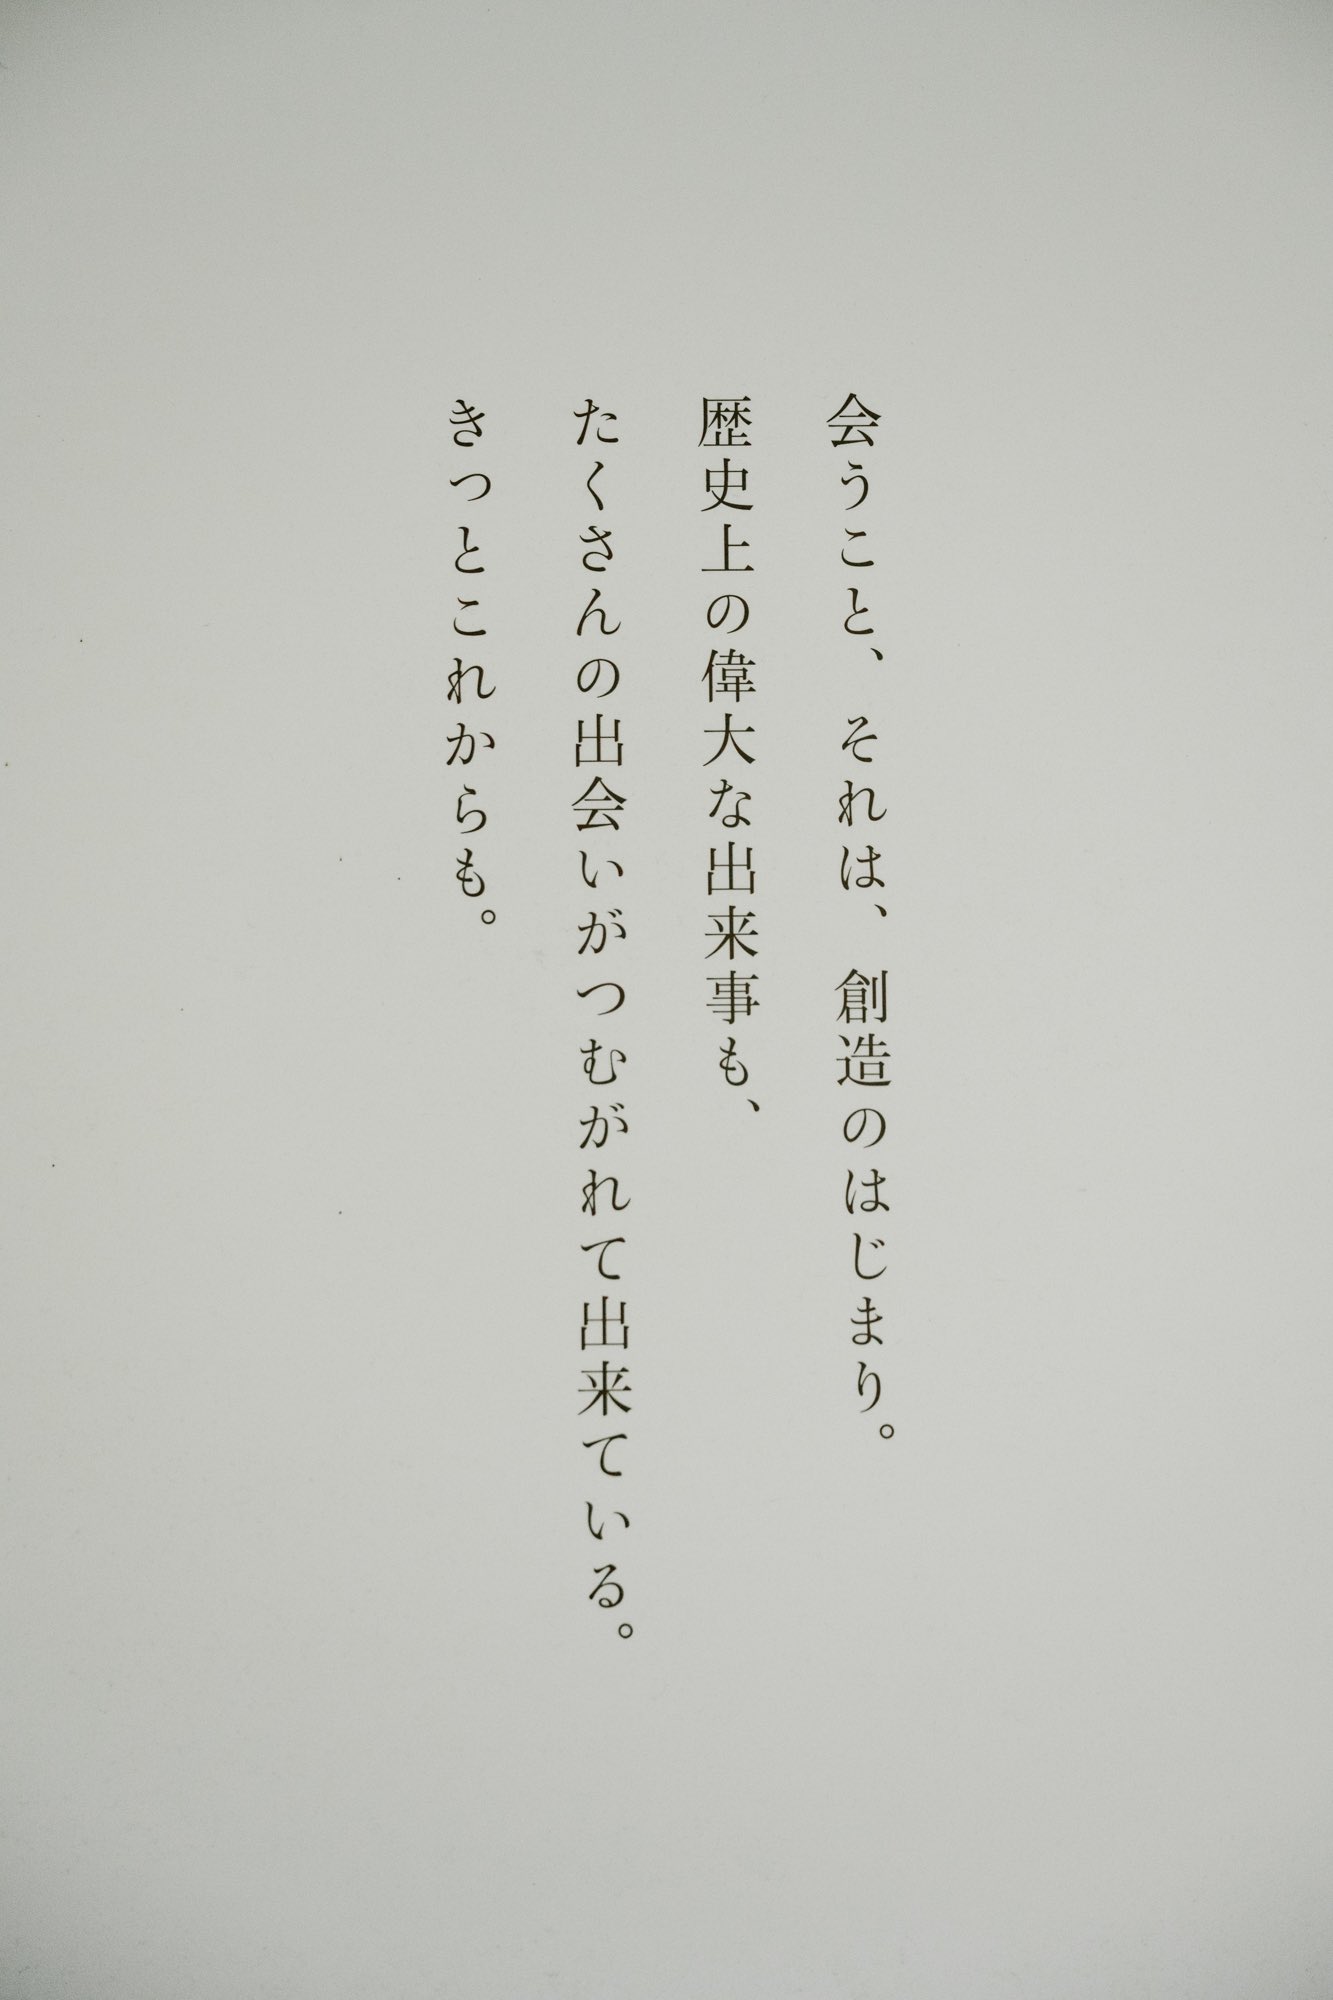 会うこと、それは、創造のはじまり。
歴史上の偉大な出来事も、
たくさんの出会いがつむがれて出来ている。
きっとこれからも。